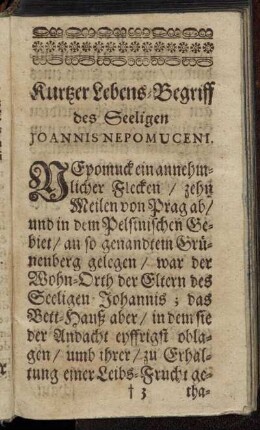 Kurtzer Lebens-Begriff
des Seeligen
JOANNIS NEPOMUCENI.
NEpomuck ein annehm-
licher Flecken / zehn
Meilen von Prag ab /
und in dem Pelsinischen Ge-
biet / an so genandtem Grü-
nenberg gelegen / war der
Wohn-Orth der Eltern des
Seeligen Johannis ; das
Bett-Hauß aber / in dem sie
der Andacht eyffrigst obla-
gen / umb ihrer / zu Erhal-
tung einer Leibs-Frucht ge-
† 3 tha-